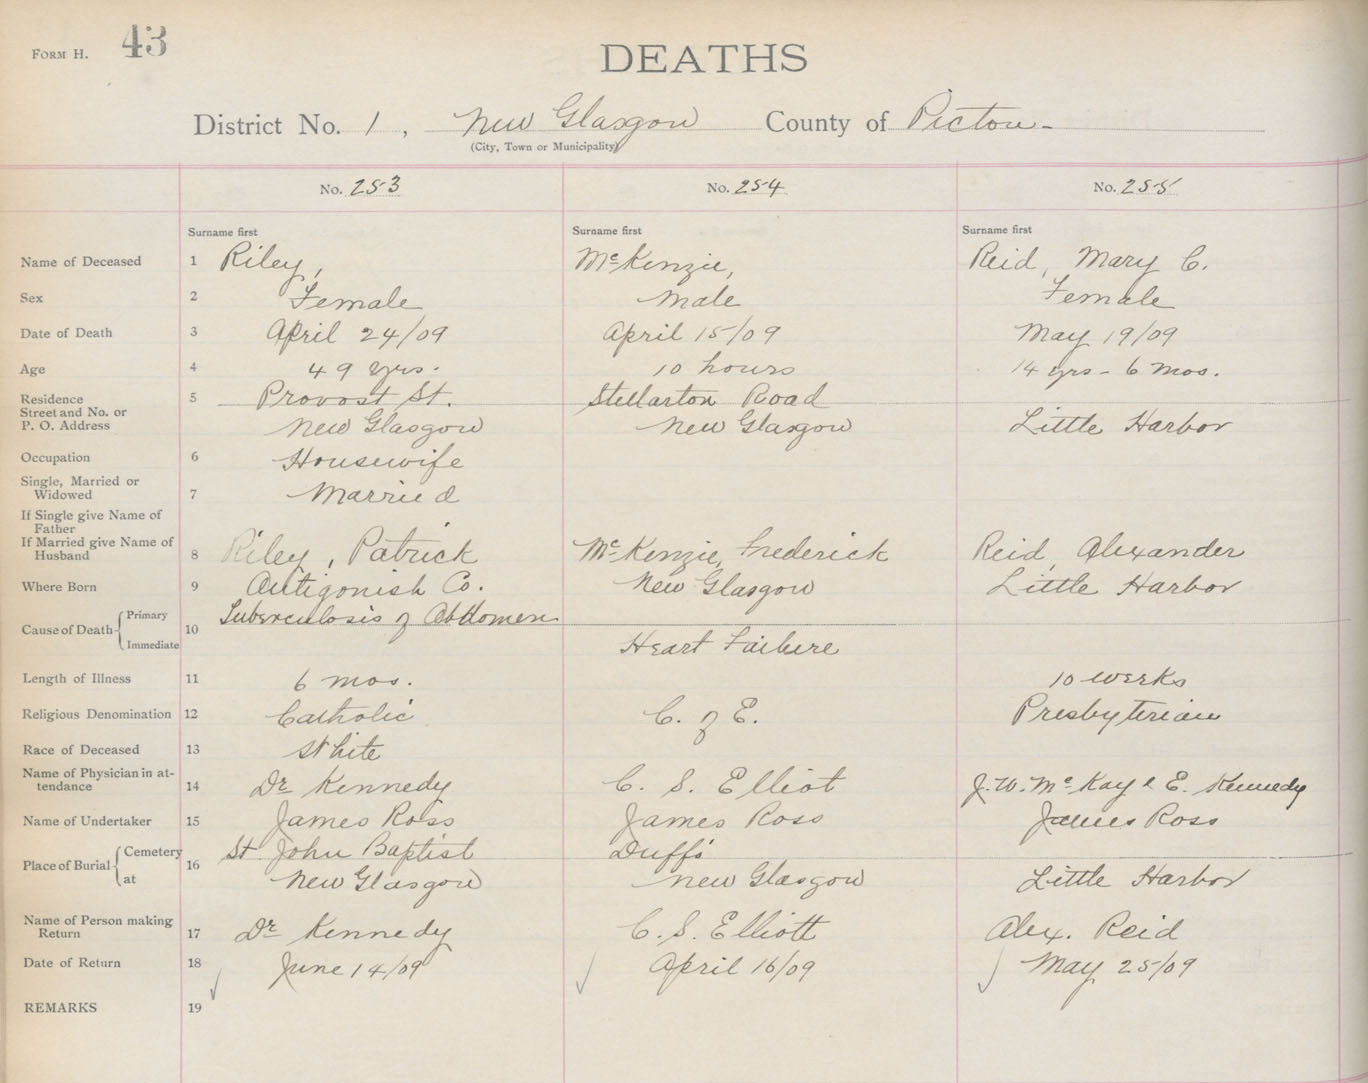 FORM H. 43
DEATHS
District No. 1, New Glasgow County of Pictou-
(City, Town or Municipality)
No. 253 No. 254 No. 255
Surname first Surname first Surname first
Name of Deceased 1 Riley, McKenzie, Reid, Mary C.
Sex 2 Female Male Female
Date of Death 3 April 24/09 April 15/09 May 19/09
Age 4 49 yrs. 10 hours 14 yrs - 6 mos.
Residence 5 Provost St. Stellarton Road
Street and No. or
P. O. Address New Glasgow New Glasgow Little Harbor
Occupation 6 Housewife
Single, Married or
Widowed 7 Married
If Single give Name of
Father
If Married give Name of
Husband 8 Riley, Patrick McKenzie, Frederick Reid, Alexander
Where Born 9 Antigonish Co. New Glasgow Little Harbor
Primary Tuberculosis of Abdomen
Cause of Death 10
Immediate Heart Failure
Length of Illness 11 6 mos. 10 weeks
Religious Denomination 12 Catholic C. of E. Presbyterian
Race of Deceased 13 White
Name of Physician in at-
tendance 14 Dr Kennedy C. S. Elliot J. W. McKay & E. Kennedy
Name of Undertaker 15 James Ross James Ross James Ross
Cemetery St. John Baptist Duffs'
Place of Burial 16
at New Glasgow New Glasgow Little Harbor
Name of Person making
Return 17 Dr Kennedy C. S. Elliott Alex. Reid
Date of Return 18 June 14/09 April 16/09 May 25/09
REMARKS 19